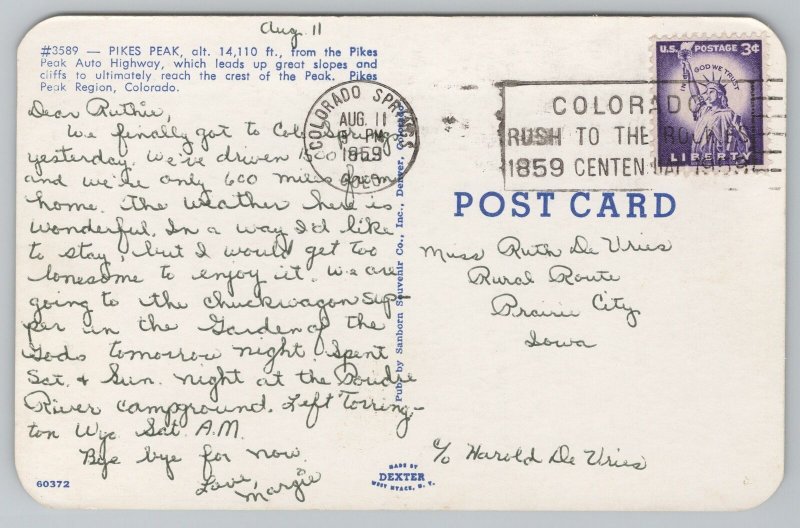 Aug. 11
#3589 — PIKES PEAK, alt. 14,110 ft., from the Pikes
Peak Auto Highway, which leads up great slopes and
cliffs to ultimately reach the crest of the Peak. Pikes
Peak Region, Colorado.
Dear Ruthie,
We finally got to Colo. Springs
yesterday. We've driven 1500 miles
and we're only 600 miles from
home. The weather here is
wonderful. In a way I'd like
to stay, but I would get too
lonesome to enjoy it. We are
going to the chuckwagon sup-
per in the Garden of the
Gods tomorrow night. Spent
Sat. & Sun. night at the Poudre
River campground. Left Torring-
ton Wyo Sat. A.M.
Bye bye for now.
Love,
Margie
60372
Pub. by Sanborn Souvenir Co., Inc., Denver, Colorado
MADE BY
DEXTER
WEST NYACK, N. Y.
COLORADO SPRINGS
AUG. 11
PM
1959
COLO.
COLORADO
RUSH TO THE ROCKIES
1859 CENTENNIAL 1959
U.S. POSTAGE 3¢
IN GOD WE TRUST
LIBERTY
POST CARD
Miss Ruth De Vries
Rural Route
Prairie City
Iowa
c/o Harold De Vries